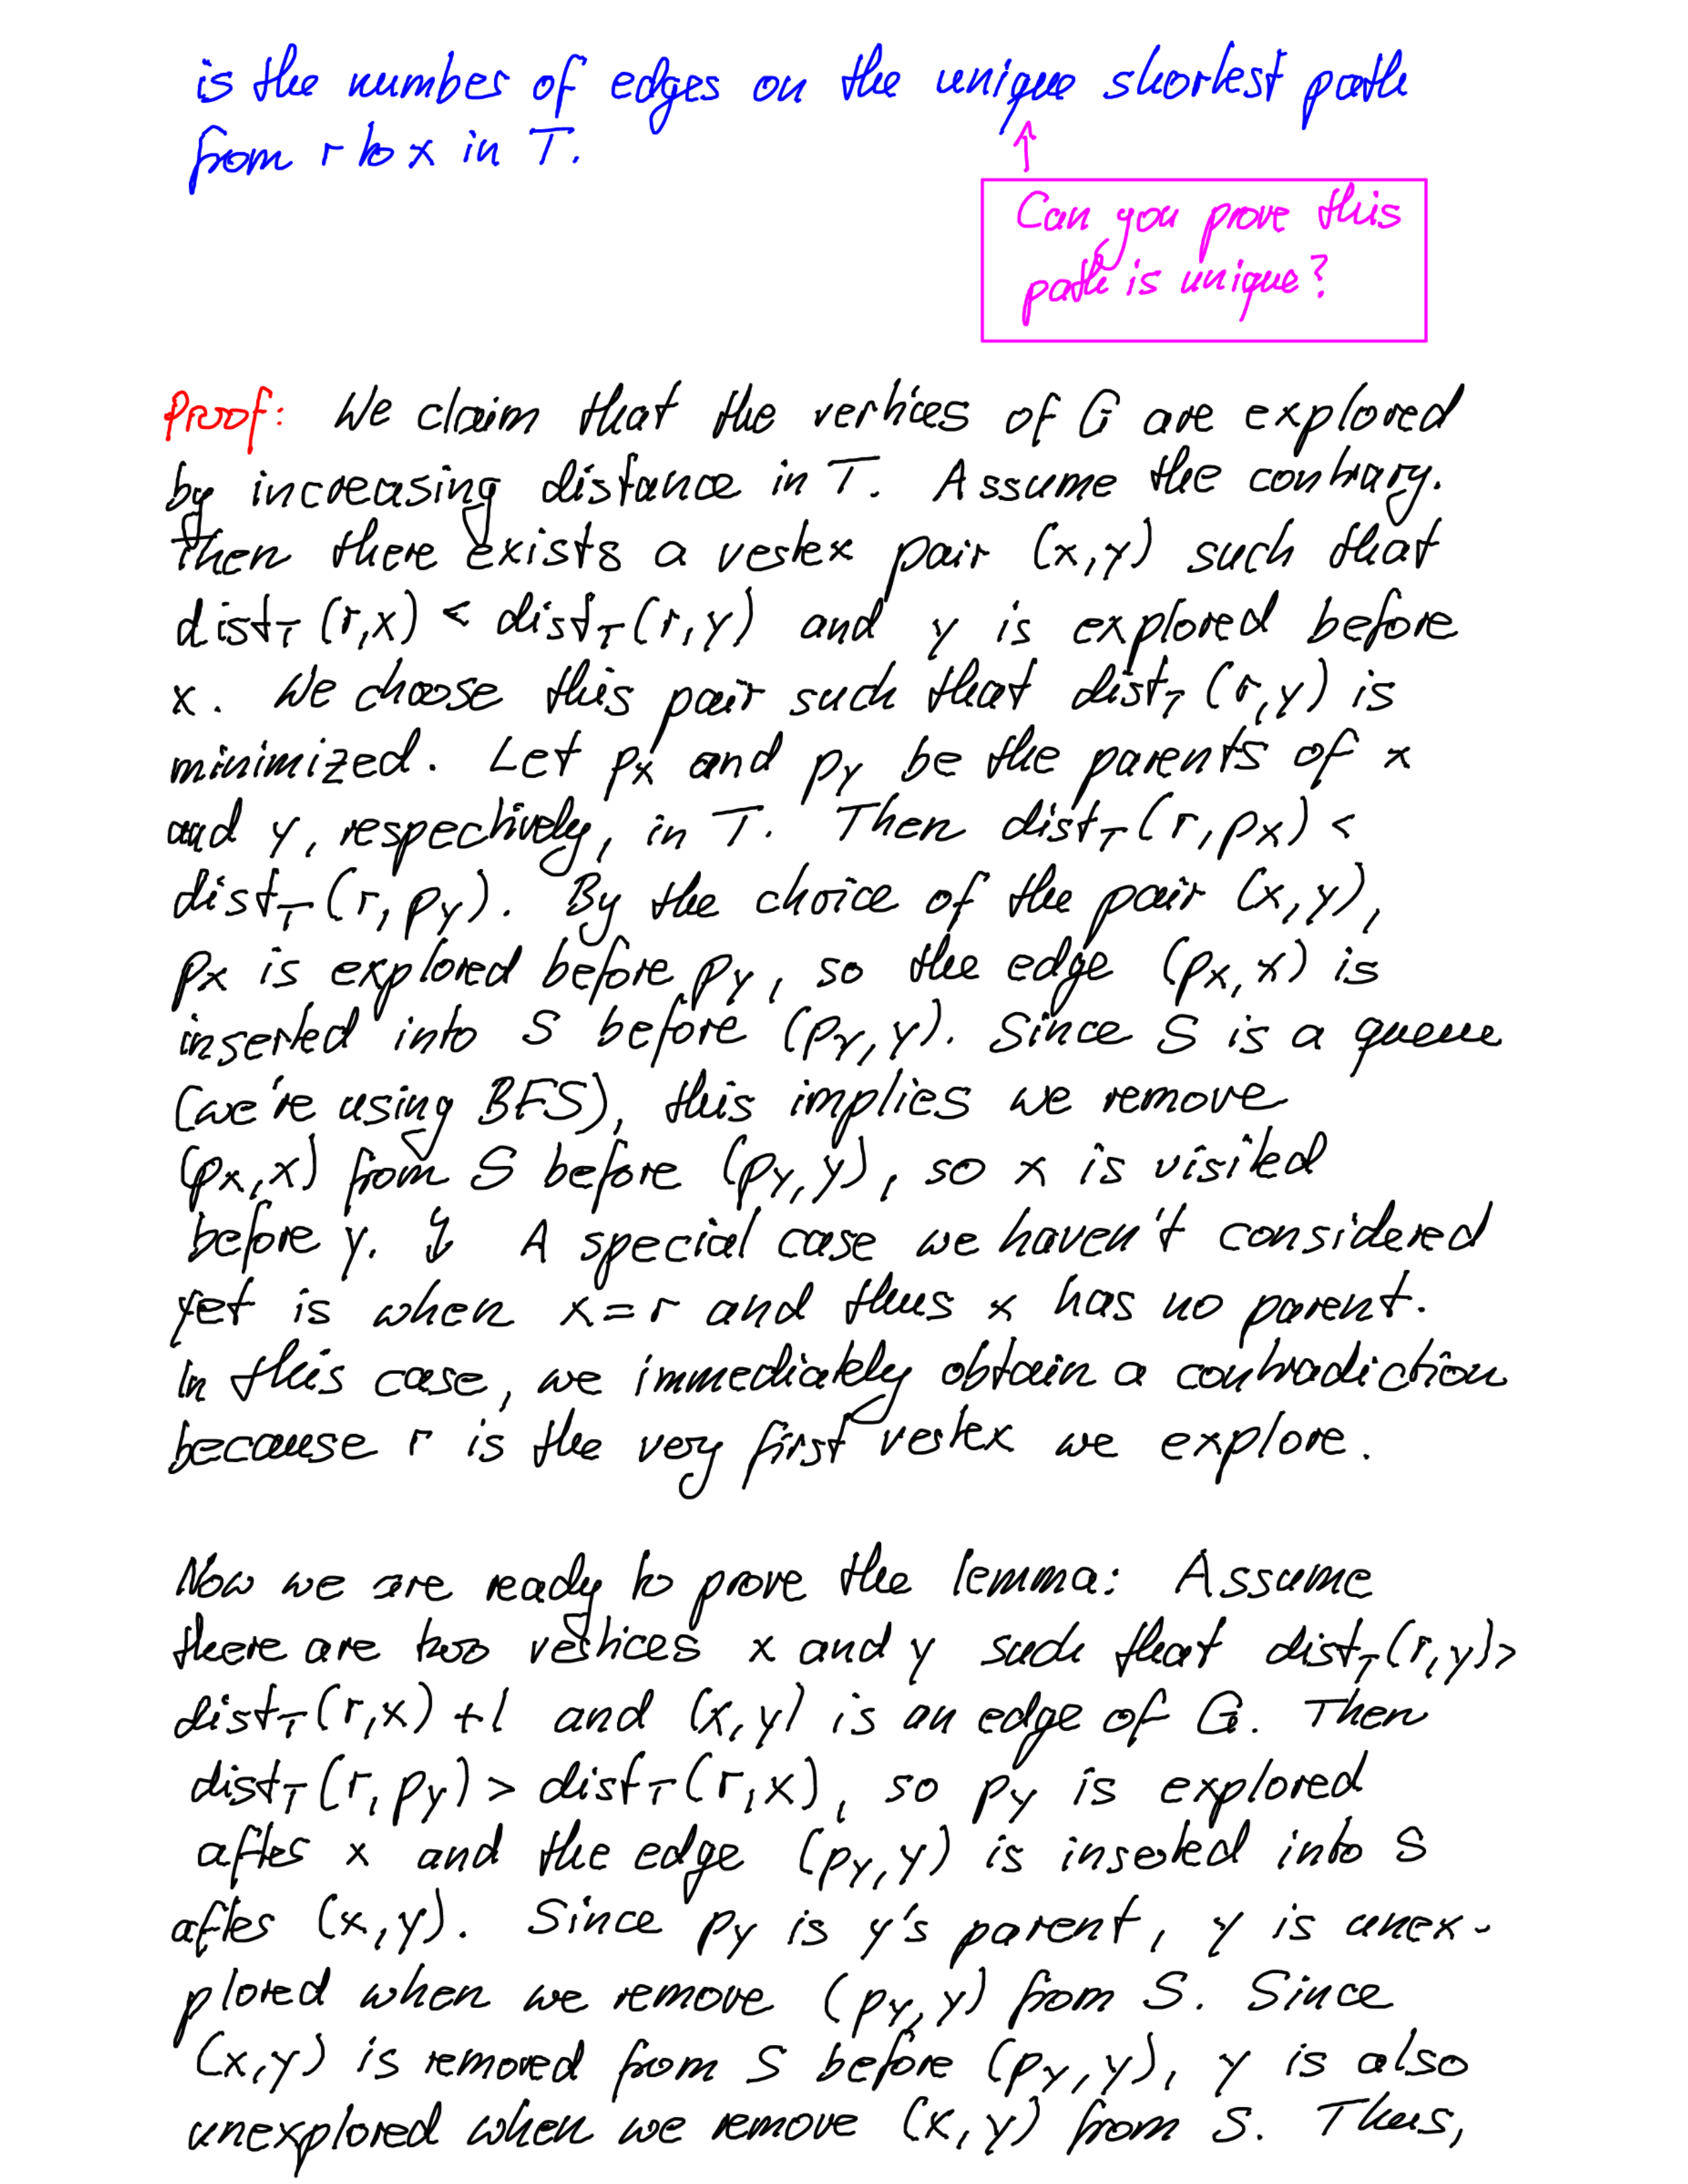 is the number of edges on the unique shortest path
from r to x in T.
↑
Can you prove this
path is unique?
Proof: We claim that the vertices of G are explored
by increasing distance in T. Assume the contrary.
Then there exists a vertex pair (x,y) such that
dist_T (r,x) < dist_T (r,y) and y is explored before
x. We choose this pair such that dist_T (r,y) is
minimized. Let p_x and p_y be the parents of x
and y, respectively, in T. Then dist_T (r, p_x) <
dist_T (r, p_y). By the choice of the pair (x,y),
p_x is explored before p_y, so the edge (p_x, x) is
inserted into S before (p_y, y). Since S is a queue
(we're using BFS), this implies we remove
(p_x, x) from S before (p_y, y), so x is visited
before y. ↯ A special case we haven't considered
yet is when x = r and thus x has no parent.
In this case, we immediately obtain a contradiction
because r is the very first vertex we explore.
Now we are ready to prove the lemma: Assume
there are two vertices x and y such that dist_T (r,y) >
dist_T (r,x) + 1 and (x,y) is an edge of G. Then
dist_T (r, p_y) > dist_T (r,x), so p_y is explored
after x and the edge (p_y, y) is inserted into S
after (x,y). Since p_y is y's parent, y is unex-
plored when we remove (p_y, y) from S. Since
(x,y) is removed from S before (p_y, y), y is also
unexplored when we remove (x,y) from S. Thus,